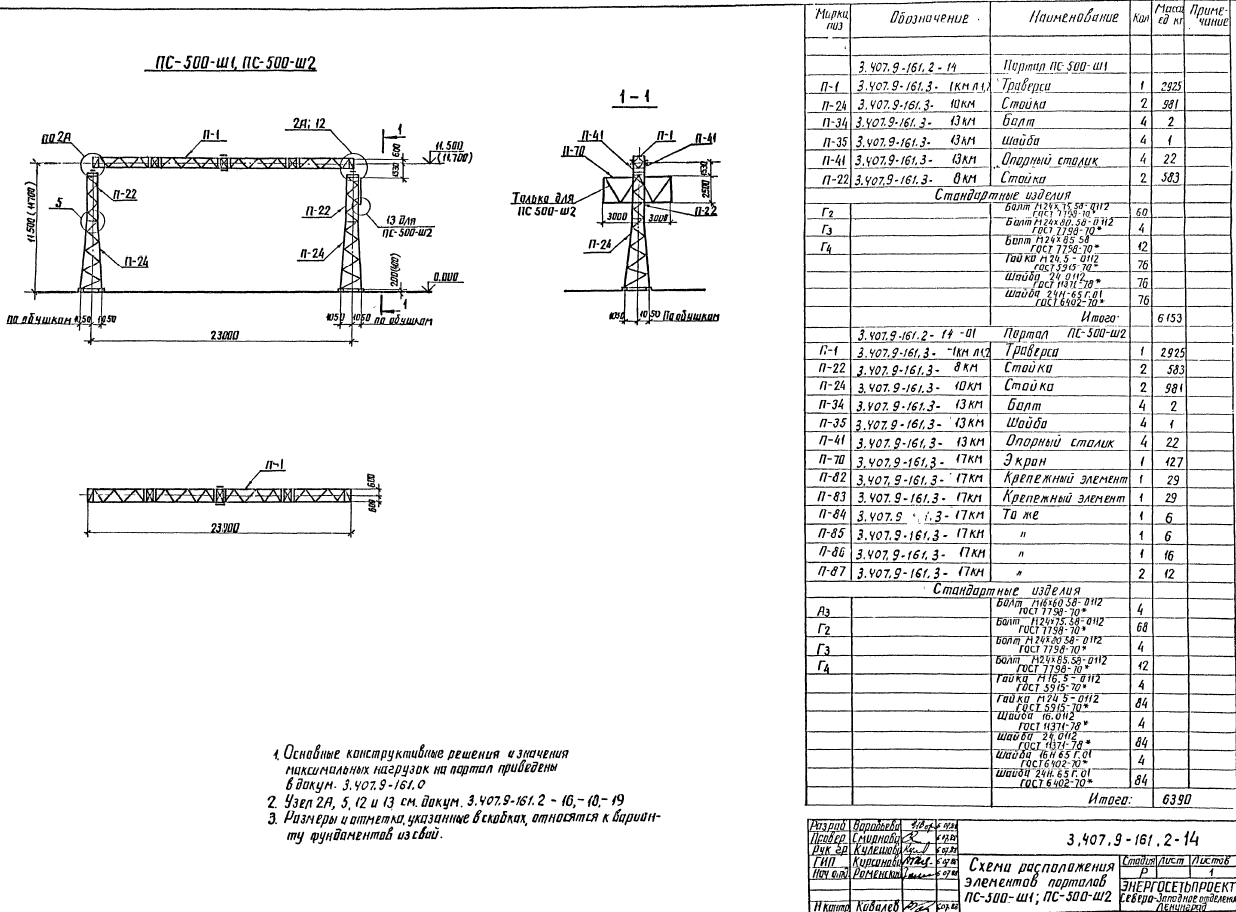 ПС-500-Ш1, ПС-500-Ш2
по 2А
П-1
2А; 12
1
600
1530
11.500
(11.700)
П-22
5
П-22
13 для
ПС-500-Ш2
П-24
П-24
11.500 (11700)
200(400)
0.000
1
по обушкам
1050
1050
1050
1050
по обушкам
23000
1-1
П-41
П-1
П-41
П-70
1530
2500
Только для
ПС 500-Ш2
3000
3000
П-22
П-24
1050
1050
По обушкам
П-1
600
600
23000
1. Основные конструктивные решения и значения
максимальных нагрузок на портал приведены
в докум. 3.407.9-161.0
2. Узел 2А, 5, 12 и 13 см. докум. 3.407.9-161.2 - 16,-18,-19
3. Размеры и отметка, указанные в скобках, относятся к вариан-
ту фундаментов из свай.
Марка поз Обозначение Наименование Кол Масса ед кг Приме-чание
3.407.9-161.2-14 Портал ПС-500-Ш1
П-1 3.407.9-161.3- 1КМ л1,2 Траверса 1 2925
П-24 3.407.9-161.3- 10КМ Стойка 2 981
П-34 3.407.9-161.3- 13КМ Болт 4 2
П-35 3.407.9-161.3- 13КМ Шайба 4 1
П-41 3.407.9-161.3- 13КМ Опорный столик 4 22
П-22 3.407.9-161.3- 8КМ Стойка 2 583
Стандартные изделия
Г2 Болт М24х75.58-0112 ГОСТ 7798-70* 60
Г3 Болт М24х80.58-0112 ГОСТ 7798-70* 4
Г4 Болт М24х85 58 ГОСТ 7798-70* 12
Гайка М24.5-0112 ГОСТ 5915-70* 76
Шайба 24 0112 ГОСТ 11371-78* 76
Шайба 24Н-65Г.01 ГОСТ 6402-70* 76
Итого: 6153
3.407.9-161.2-14-01 Портал ПС-500-Ш2
П-1 3.407.9-161.3- 1КМ л1,2 Траверса 1 2925
П-22 3.407.9-161.3- 8КМ Стойка 2 583
П-24 3.407.9-161.3- 10КМ Стойка 2 981
П-34 3.407.9-161.3- 13КМ Болт 4 2
П-35 3.407.9-161.3- 13КМ Шайба 4 1
П-41 3.407.9-161.3- 13КМ Опорный столик 4 22
П-70 3.407.9-161.3- 17КМ Экран 1 127
П-82 3.407.9-161.3- 17КМ Крепежный элемент 1 29
П-83 3.407.9-161.3- 17КМ Крепежный элемент 1 29
П-84 3.407.9 1.3- 17КМ То же 1 6
П-85 3.407.9-161.3- 17КМ " 1 6
П-86 3.407.9-161.3- 17КМ " 1 16
П-87 3.407.9-161.3- 17КМ " 2 12
Стандартные изделия
А3 Болт М16х60 58-0112 ГОСТ 7798-70* 4
Г2 Болт М24х75.58-0112 ГОСТ 7798-70* 68
Г3 Болт М24х80 58-0112 ГОСТ 7798-70* 4
Г4 Болт М24х85.58-0112 ГОСТ 7798-70* 12
Гайка М16.5-0112 ГОСТ 5915-70* 4
Гайка М24 5-0112 ГОСТ 5915-70* 84
Шайба 16.0112 ГОСТ 11371-78* 4
Шайба 24.0112 ГОСТ 11371-78* 84
Шайба 16Н 65Г.01 ГОСТ 6402-70* 4
Шайба 24Н.65Г.01 ГОСТ 6402-70* 84
Итого: 6390
Разраб Воробьева
Провер Смирнова
Рук гр Кулешова
ГИП Кирсанова
Нач отд Роменский
Н контр Ковалев
3.407.9-161.2-14
Схема расположения
элементов порталов
ПС-500-Ш1; ПС-500-Ш2
Стадия Лист Листов
Р 1
ЭНЕРГОСЕТЬПРОЕКТ
Северо-Западное отделение
Ленинград